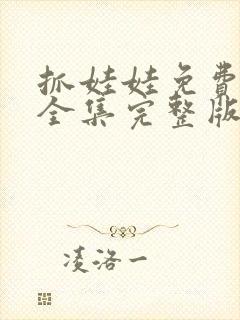 抓娃娃免费
全集完整版
凌洛一